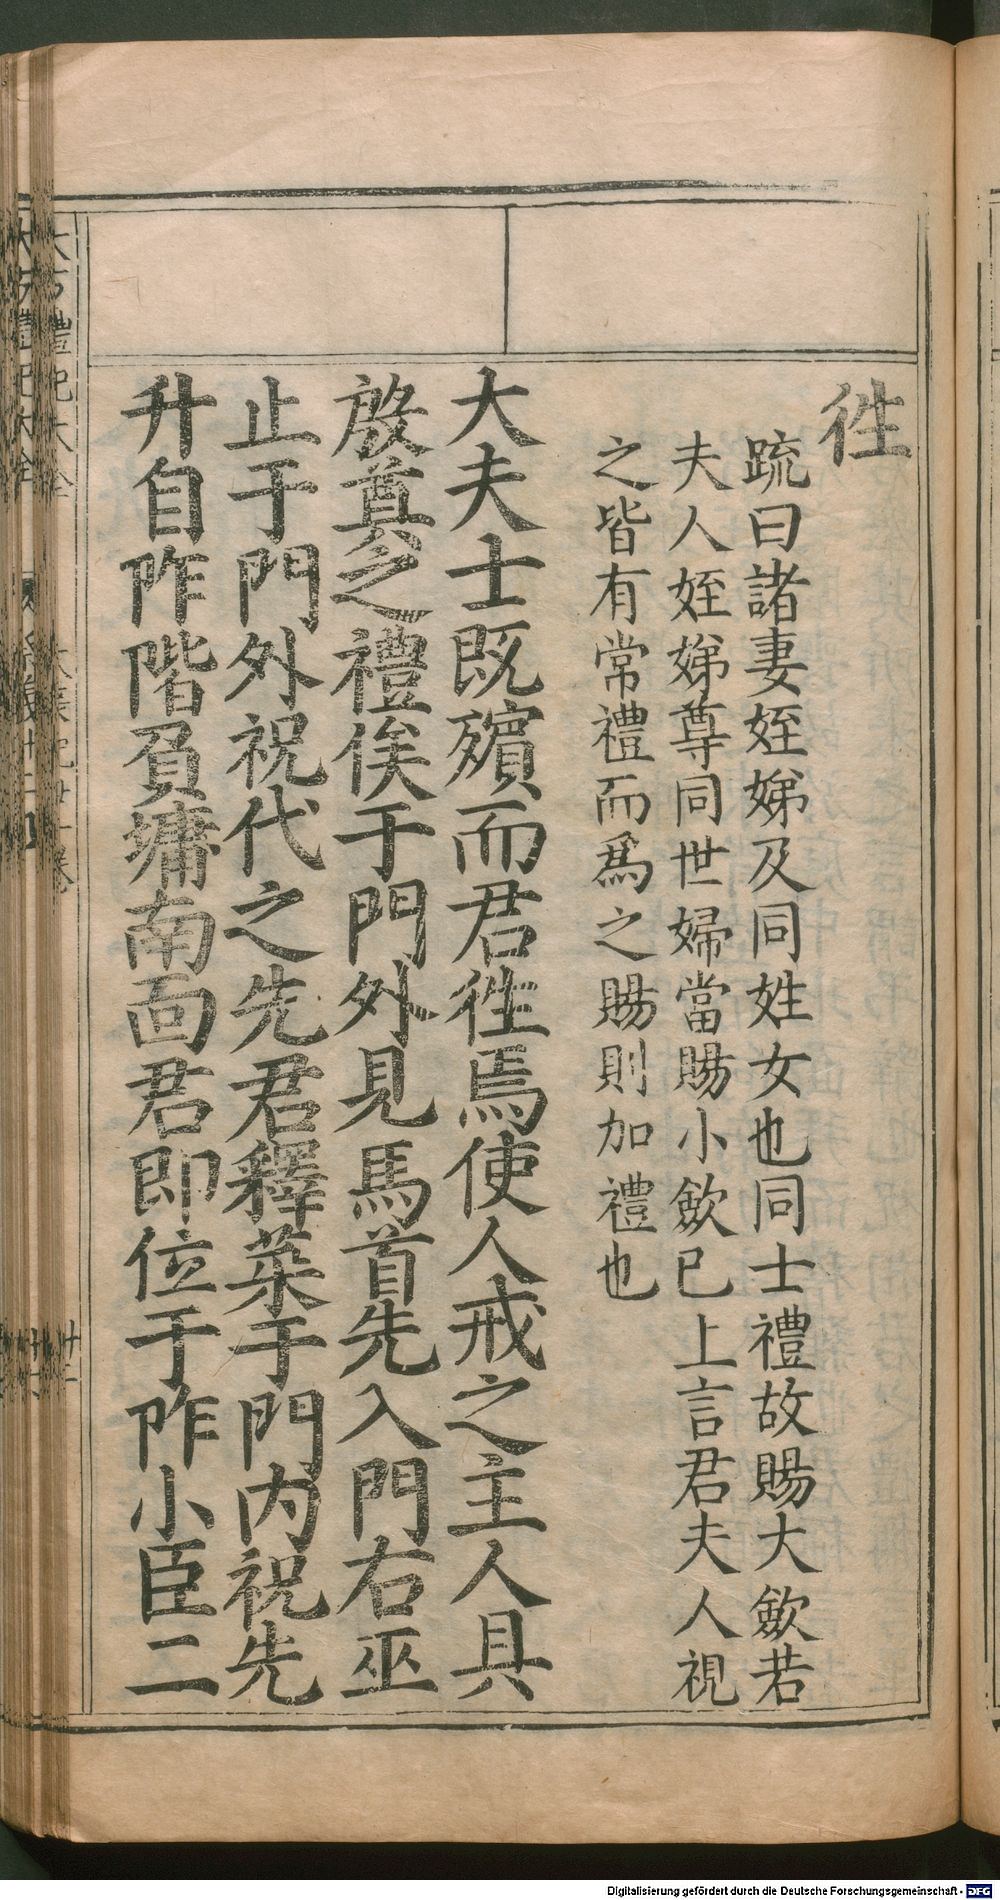 徃
䟽曰諸妻姪娣及同姓女也同士禮故賜大歛若
夫人姪娣尊同世婦當賜小歛已上言君夫人視
之皆有常禮而爲之賜則加禮也
大夫士既殯而君徃焉使人戒之主人具
殷奠之禮俟于門外見馬首先入門右巫
止于門外祝代之先君釋菜于門内祝先
升自阼階負墉南面君即位于阼小臣二
Digitalisierung gefördert durch die Deutsche Forschungsgemeinschaft - DFG